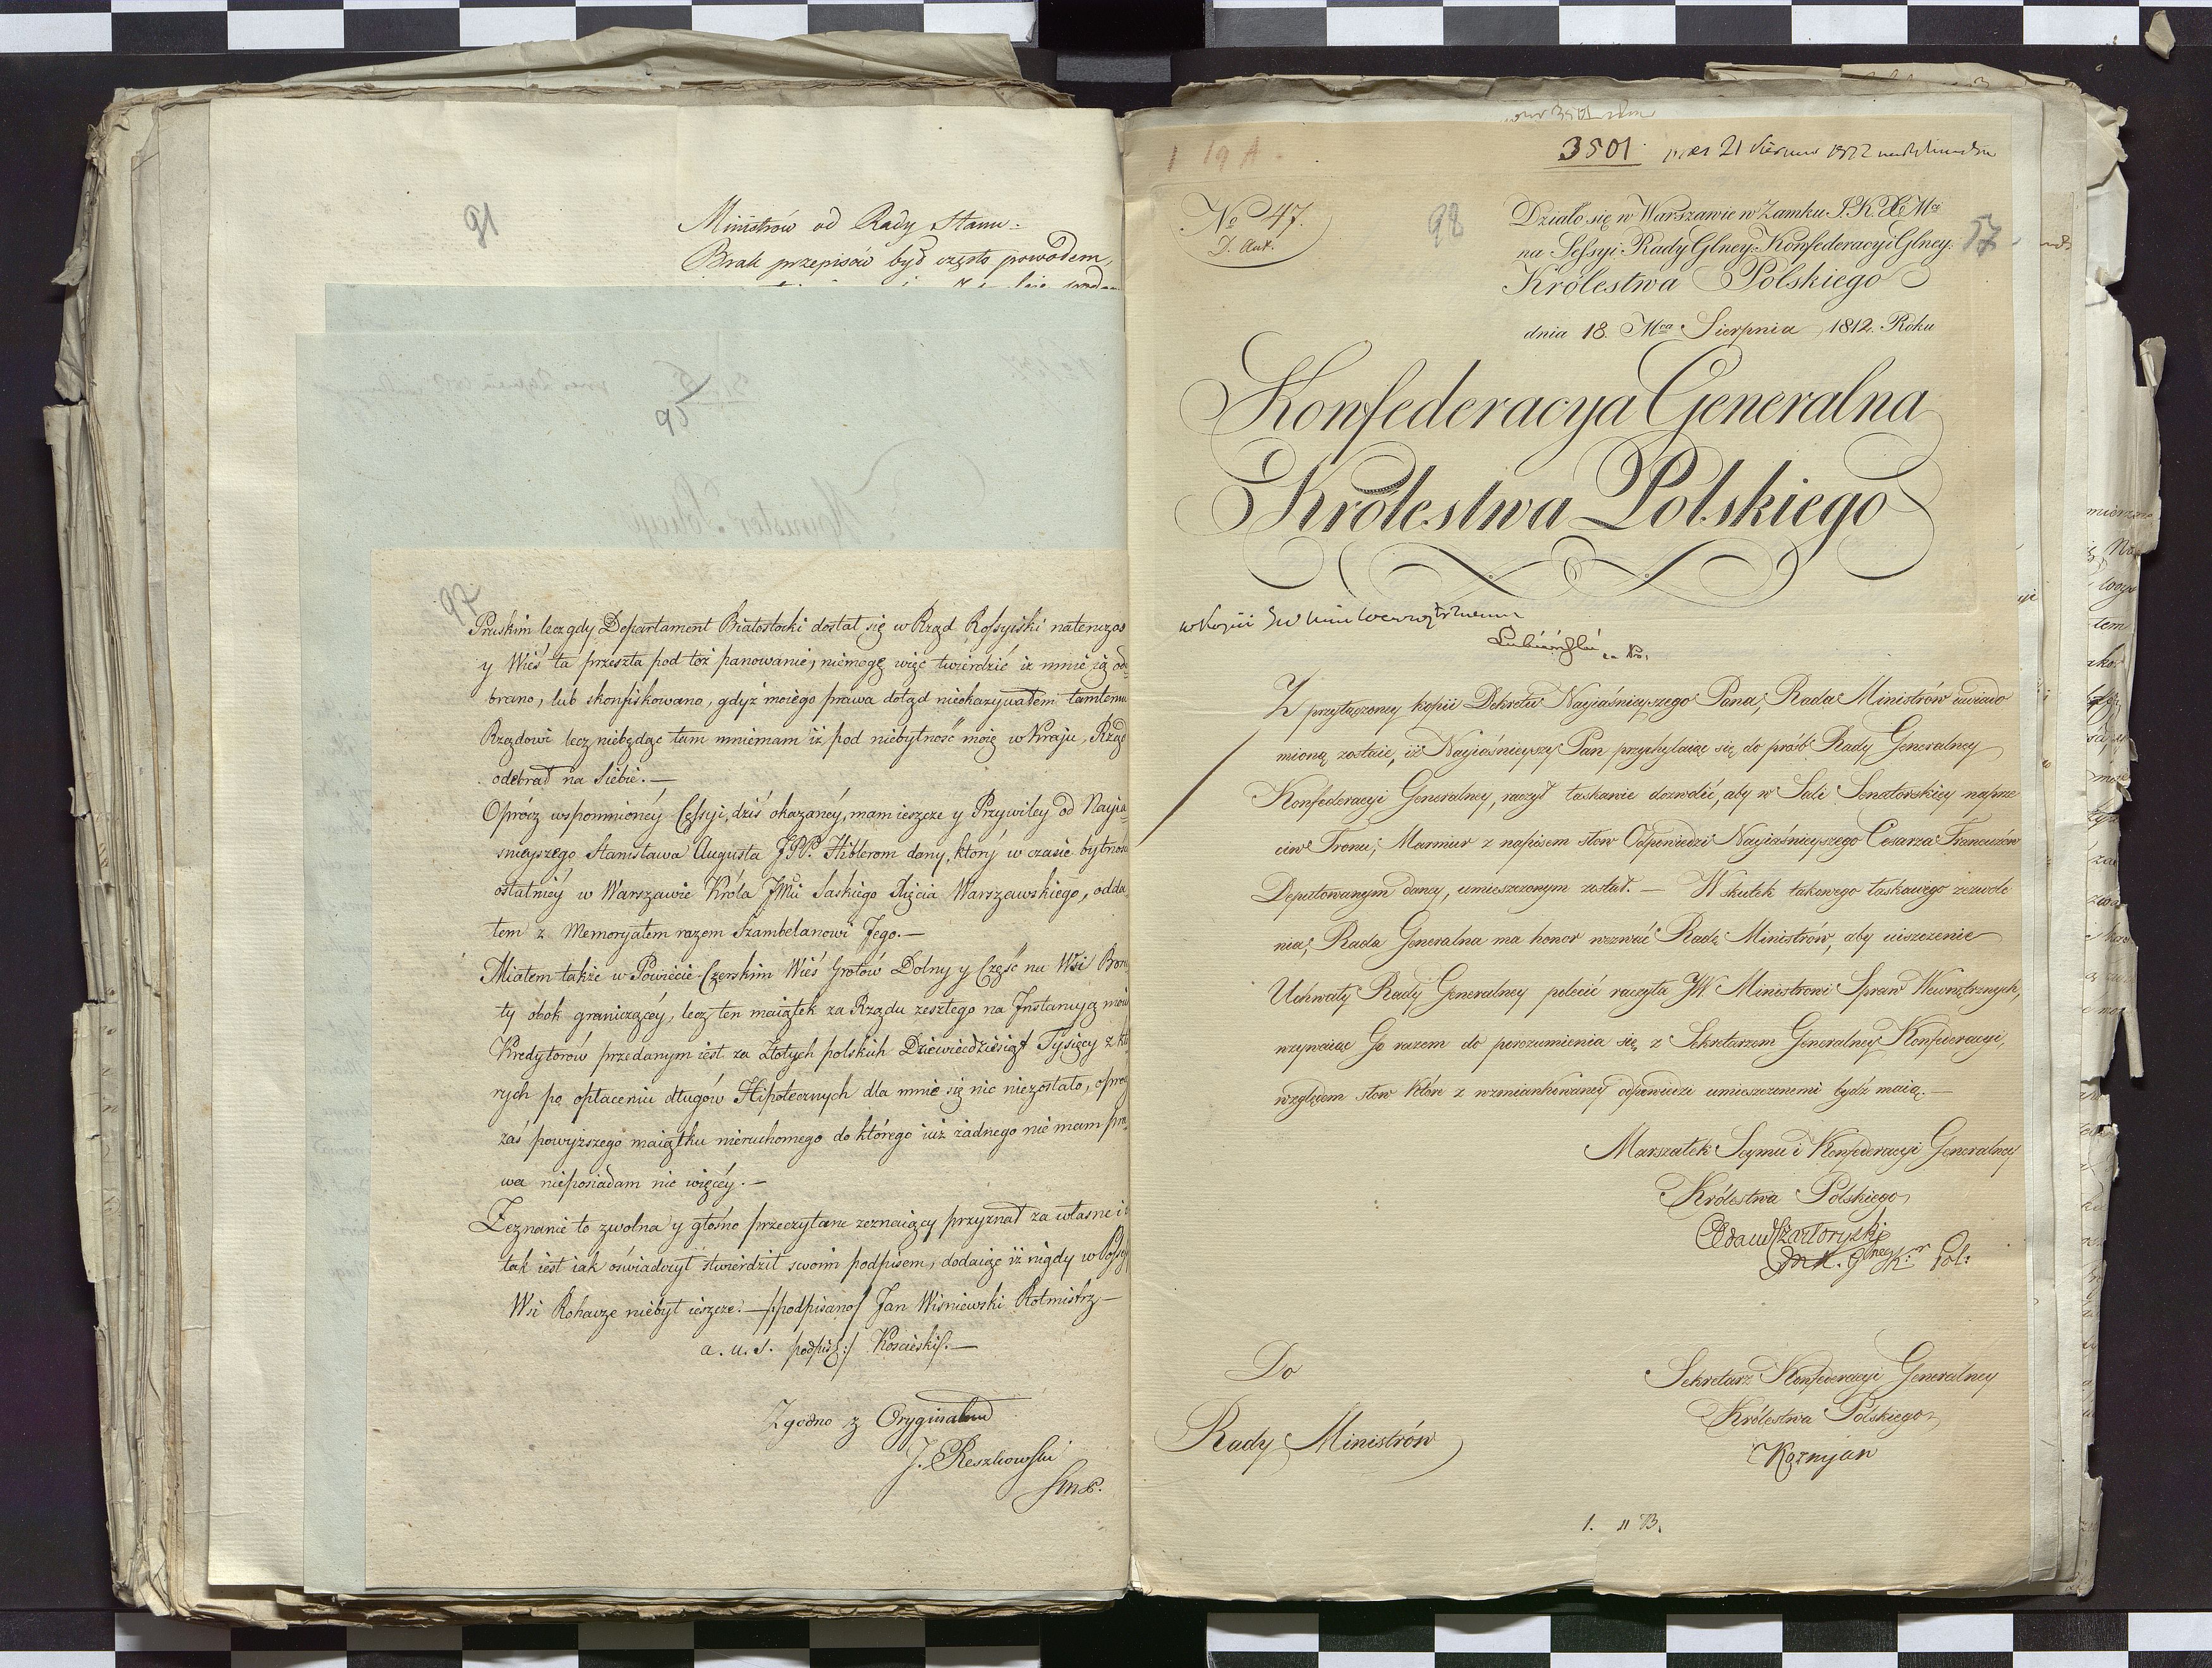 91
Ministrów od Rady Stanu:
Brak przepisów był często powodem,
95
97
Pruskim lecz gdy Departament Białostocki dostał się w Rząd Rossyiski natenczas
y Wieś ta przeszła pod toż panowanie, niemogę więc twierdzić iż mnie ią od=
brano, lub skonfiskowano, gdyż moiego prawa dotąd nieokazywałem tamtemu
Rządowi lecz niebędąc tam mniemam iż pod niebytność moię w Kraju, Rząd
odebrał na siebie.—
Oprócz wspomnionéy Cessyi, dziś okazanéy, mam ieszcze y Przywiley od Nayia=
snieyszego Stanisława Augusta JPP. Hiblerom dany, który w czasie bytnosci
ostatniéy w Warszawie Króla JMci Saskiego Xięcia Warszawskiego, odda=
łem z Memoryałem razem Szambelanowi Jego.—
Miałem także w Powiecie Czerskim Wieś Grotów Dolny y Część na Wsi
ty obok graniczącéy, lecz ten maiątek za Rządu zeszłego na Instancyą moich
Kredytorów przedanym iest za Złotych polskich Dziewiędziesiąt Tysięcy z któ
rych po opłaceniu długów Hipotecznych dla mnie się nic niezostało, oprócz
zaś powyższego maiątku nieruchomego do którego iuż żadnego nie mam pra=
wa nieposiadam nic więcéy.—
Zeznanie to zwolna y głośno przeczytane zeznaiący przyznał za własne i
tak iest iak oświadczył stwierdził swoim podpisem, dodaiąc iż nigdy w
Wsi Rohacze niebył ieszcze.—/:podpisano/ Jan Wiśniewski Rotmistrz—
a. u. s. podpis:/ Koscieski.—
Zgodno z Oryginałem
J. Reszkowski
3501
przes 21 Sierpnia 1812
1 19 A
No 47.
D. Aux.
98
57
Działo się w Warszawie w Zamku J.K.X Mci
na Sessyi Rady Glney Konfederacyi Glney
Królestwa Polskiego
dnia 18. Mca Sierpnia 1812. Roku
Konfederacya Generalna
Królestwa Polskiego
w kopii
Lubieński
Z przyłączoney kopii Dekretu Nayiaśnieyszego Pana, Rada Ministrów uwiado
mioną zostaie, iż Nayiaśnieyszy Pan przychylaiąc się do próśb Rady Generalney
Konfederacyi Generalney, raczył łaskawie dozwolić, aby w Sali Senatorskiey naprze
ciw Tronu, Marmur z napisem słow Odpowiedzi Nayiaśnieyszego Cesarza Francuzów
Deputowanym daney, umieszczonym został. — W skutek takowego łaskawego zezwole
nia, Rada Generalna ma honor wezwać Radę Ministrów, aby uiszczenie
Uchwały Rady Generalney polecić raczyła JW. Ministrowi Spraw Wewnętrznych,
wzywaiąc Go razem do porozumienia się z Sekretarzem Generalney Konfederacyi,
względem słow które z wzmiankowaney odpowiedzi umieszczonemi bydź maią.—
Marszałek Seymu i Konfederacyi Generalney
Królestwa Polskiego
Adam Czartoryski
Do
Rady Ministrów
Sekretarz Konfederacyi Generalney
Królestwa Polskiego
Kozmjan
1. 11 B.